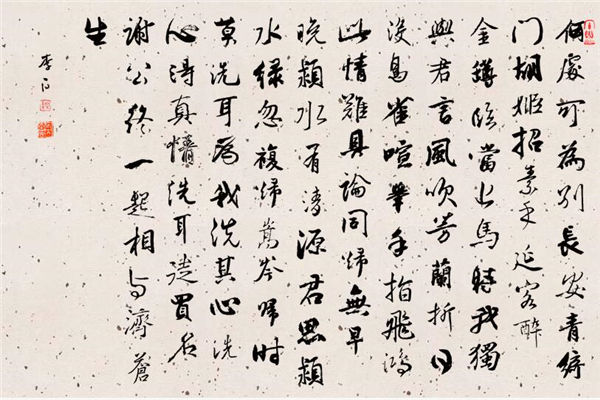 何處可為別長安青綺
门胡姬招素手延客醉
金罇臨當上馬時我獨
與君言風吹芳蘭折日
没鳥雀喧舉手指飛鴻
此情難具論同歸無早
晚潁水有清源君思潁
水緑忽複歸嵩岑歸時
莫洗耳為我洗其心洗
心得真情洗耳徒買名
謝公終一起相与濟蒼
生
李白